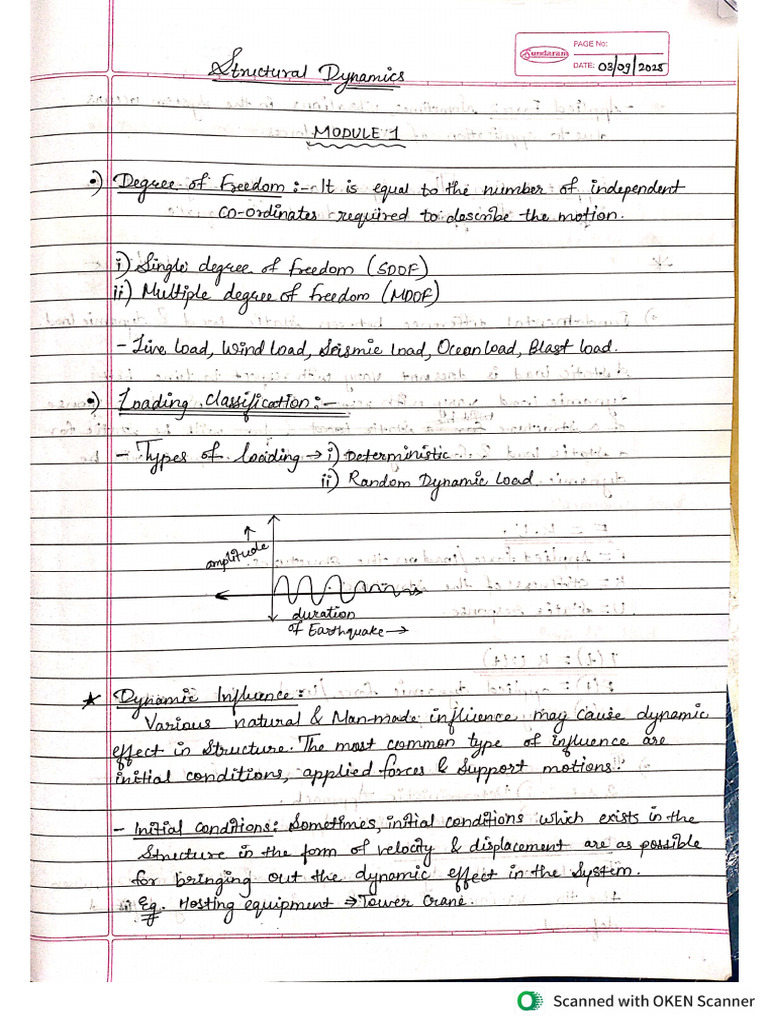 Sundaram
PAGE No:
DATE: 03/09/2025
Structural Dynamics
MODULE 1
•) Degree of Freedom :- It is equal to the number of independent
co-ordinates required to describe the motion.
i) Single degree of freedom (SDOF)
ii) Multiple degree of freedom (MDOF)
- Live load, Wind load, Seismic load, Ocean load, Blast load.
•) Loading classification :-
- Types of loading → i) Deterministic
ii) Random Dynamic Load
amplitude →
duration
of Earthquake →
* Dynamic Influence:
Various natural & Man-made influence may cause dynamic
effect in structure. The most common type of influence are
initial conditions, applied forces & support motions.
- Initial conditions: Sometimes, initial conditions which exists in the
structure in the form of velocity & displacement are as possible
for bringing out the dynamic effect in the system.
Eg. Hosting equipment → Tower Crane.
Scanned with OKEN Scanner